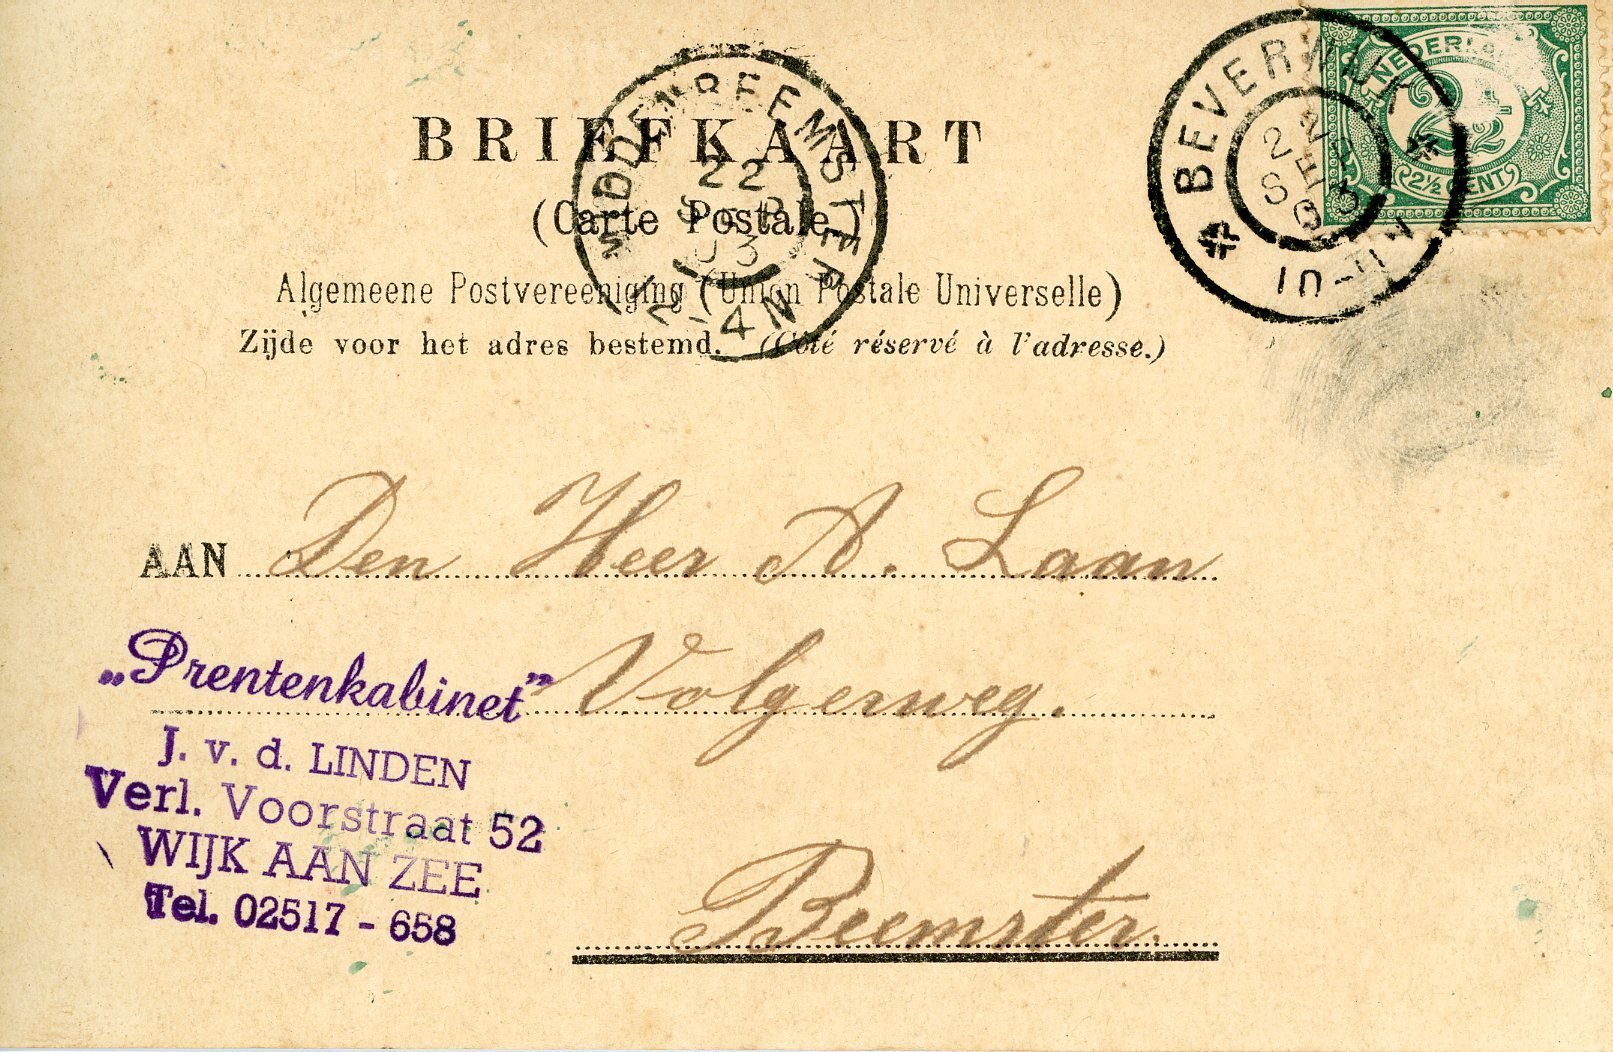 BRIEFKAART
(Carte Postale)
Algemeene Postvereeniging (Union Postale Universelle)
Zijde voor het adres bestemd. (Côté réservé à l'adresse.)
MIDDENBEEMSTER
22
SEP
03
2-4N
BEVERWIJK
03
NEDERLAND
2½
2½ CENT
AAN Den Heer A. Laan
Volgerweg.
Beemster.
„Prentenkabinet”
J. v. d. LINDEN
Verl. Voorstraat 52
WIJK AAN ZEE
Tel. 02517 - 658